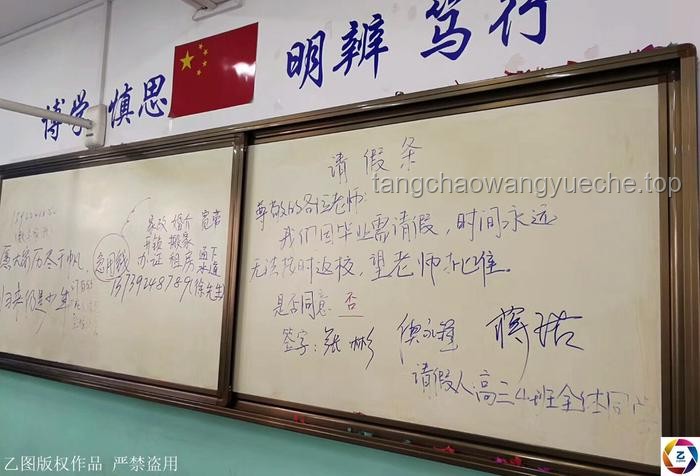 博学 慎思 明辨 笃行
请假条
tangchaowangyueche.top
尊敬的各位老师:
我们因毕业需请假,时间永远
无法按时返校,望老师批准。
是否同意 否
签字:张彬
请假人:高三4班全体同
愿大家历尽千帆,
归来仍是少年
急用钱
家政 婚介 宽带
开锁 搬家
办证 租房 通下水道
13739248789(徐先生)
乙图版权作品 严禁盗用
乙